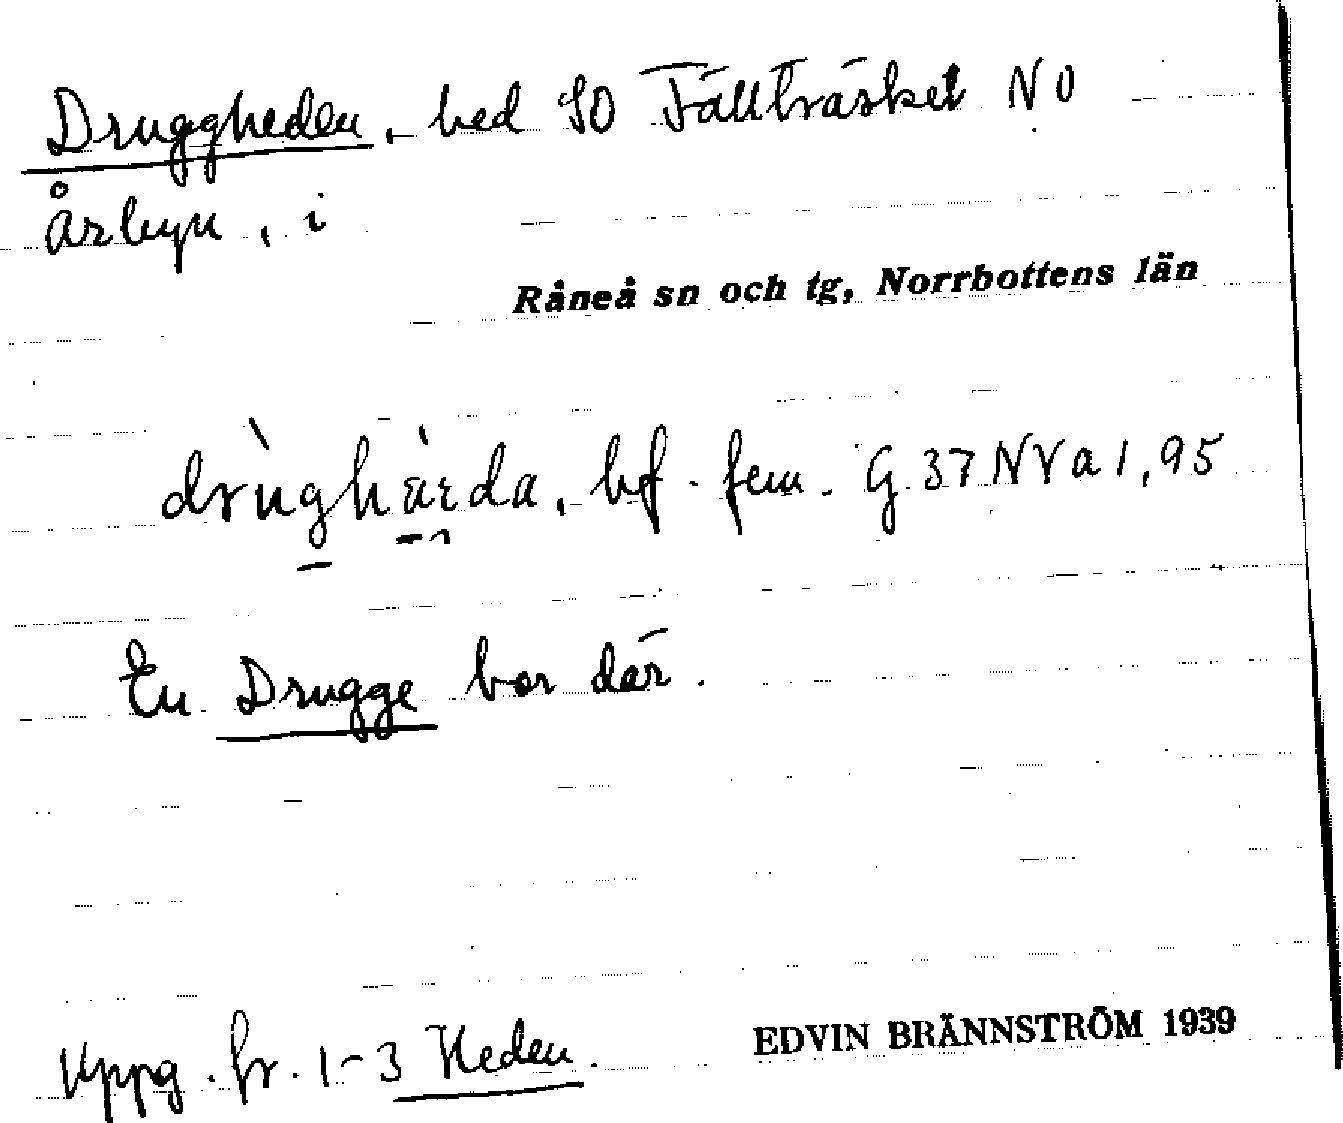 Druggheden, hed SO Fällträsket NO
Årbyn, i
Råneå sn och tg, Norrbottens län
bf. fem. G 37 NV a 1, 95
En Drugge bor där.
Uppg. fr. 1-3 Heden.
EDVIN BRÄNNSTRÖM 1939